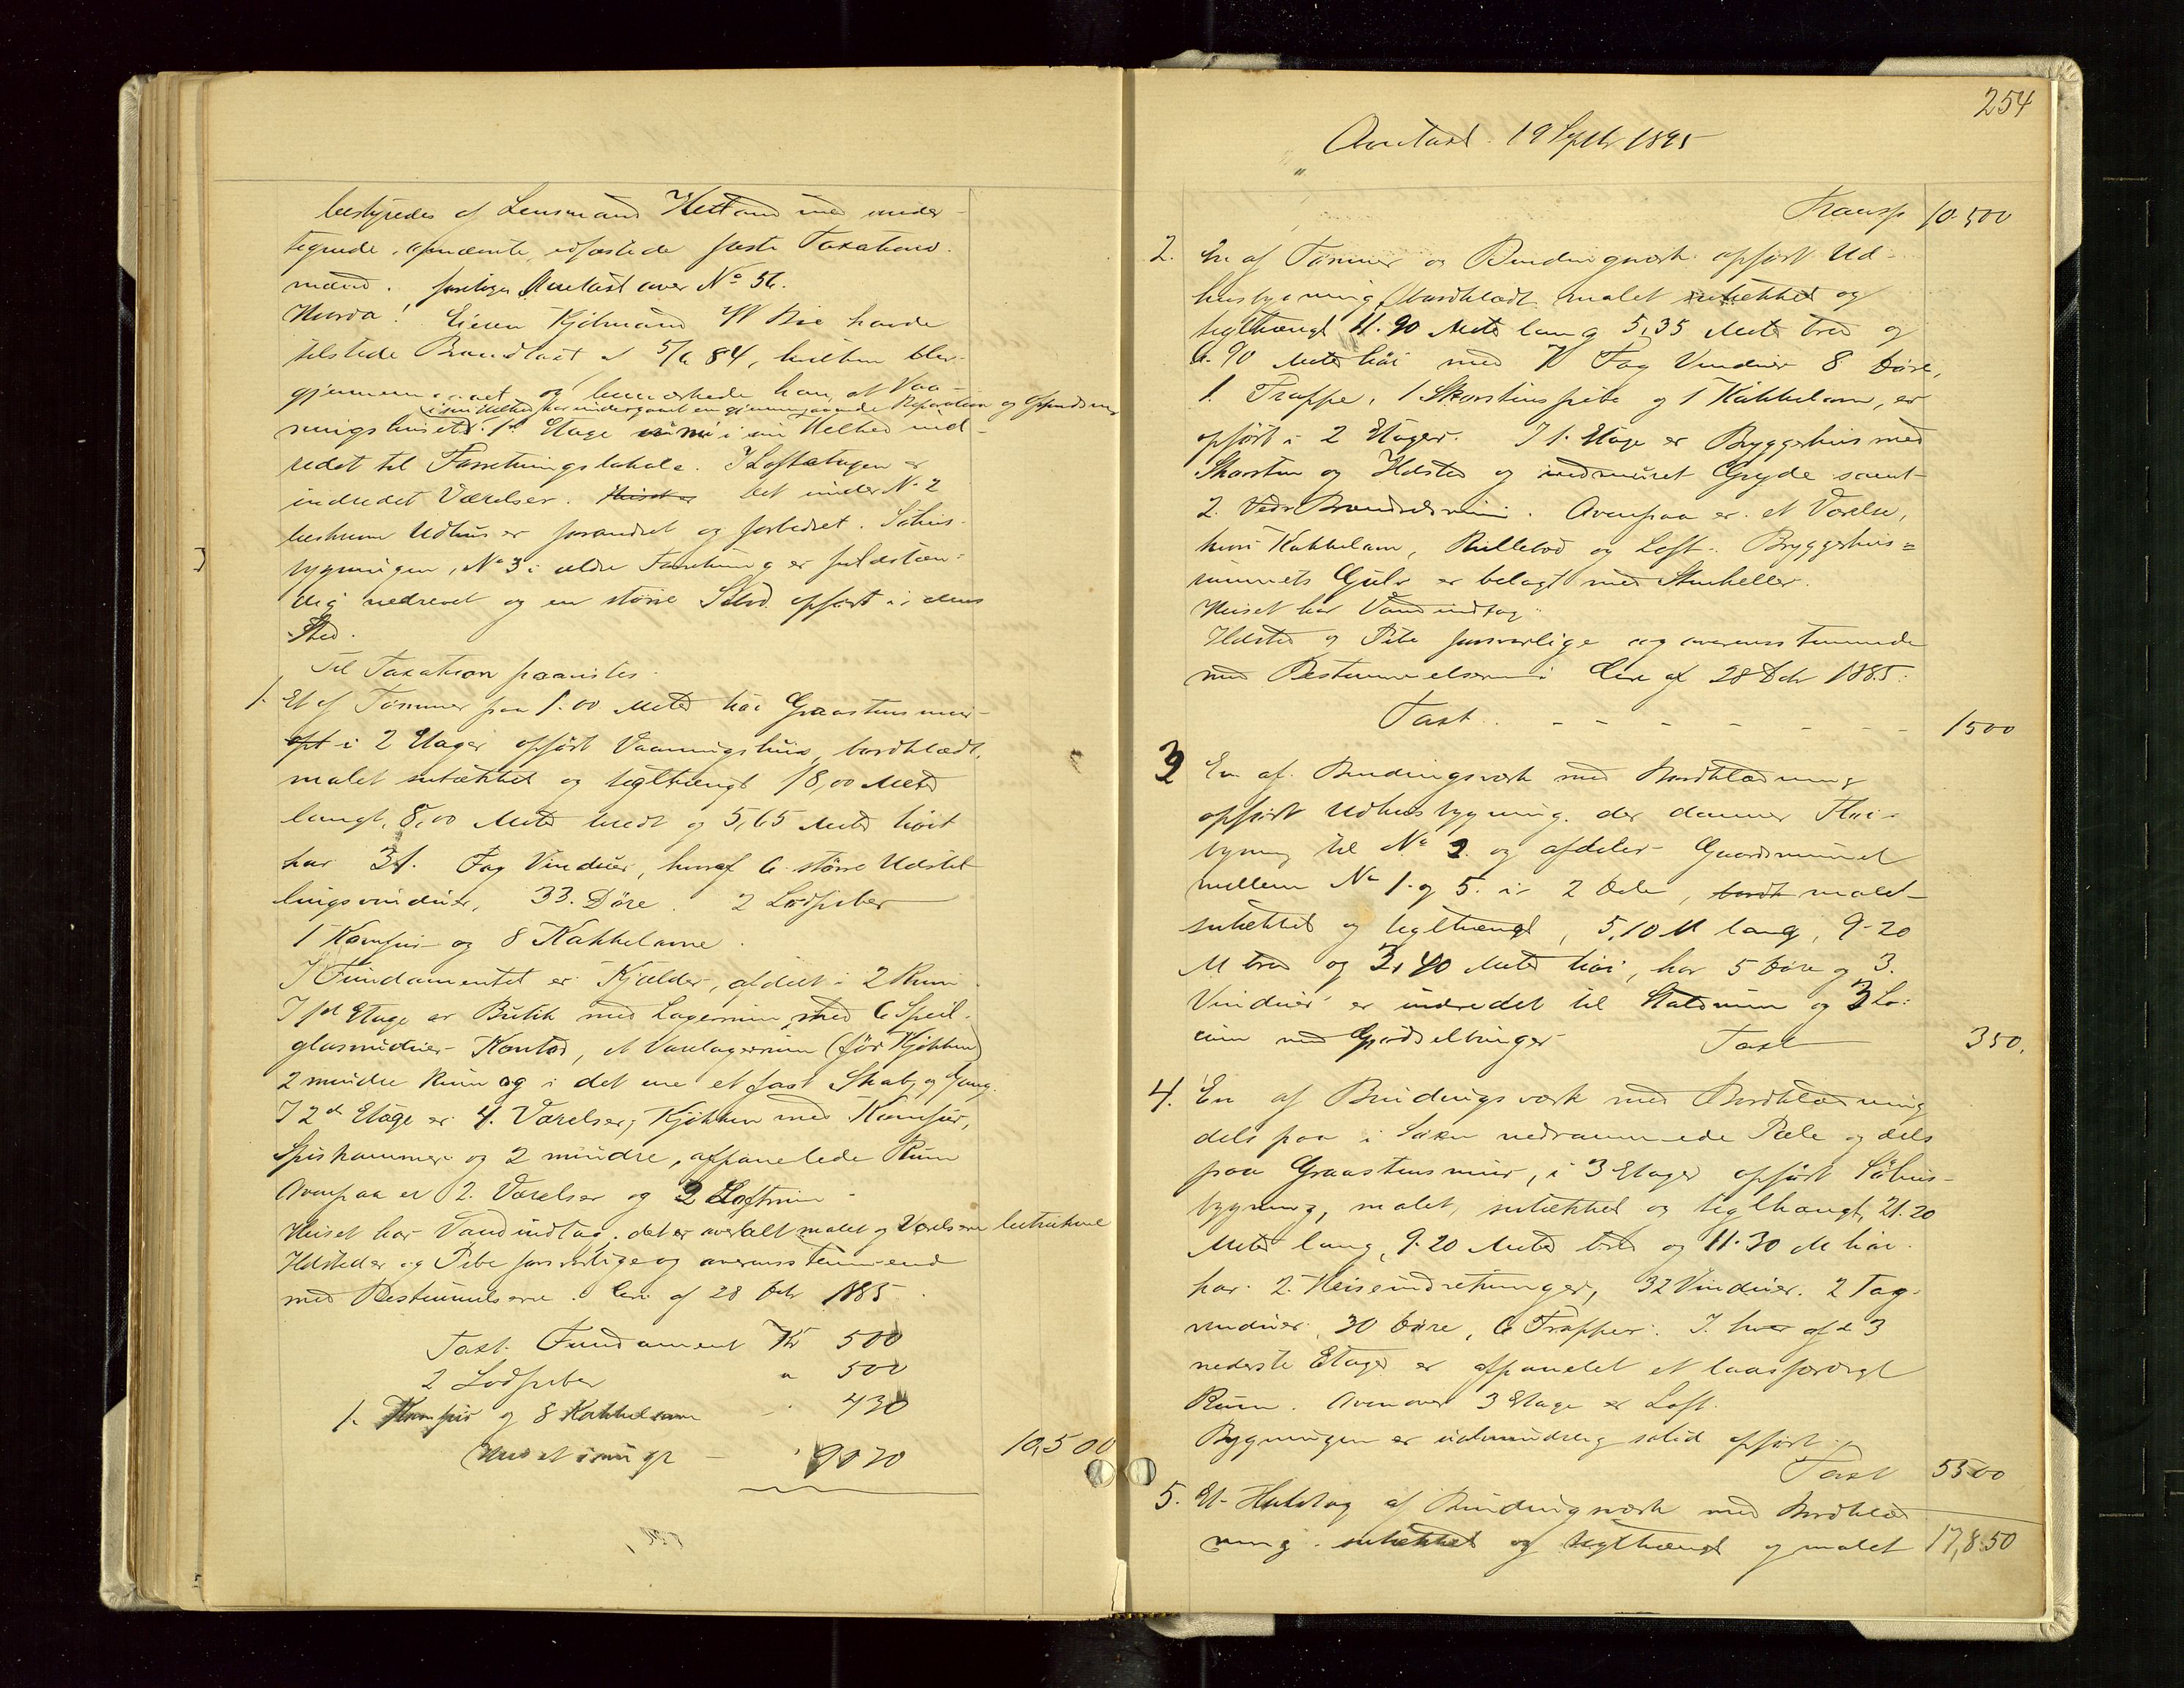 bestyredes af Lensmand Hetland med under-
tegnede, opnævnte, edfæstede faste Taxations-
mænd. foretages Omtaxt over No 56.
Hvorda! Eieren Kjöbmand W Bie havde
tilstede Brandtaxt af 5/6 84, hvilken blev
gjennemgaaet og bemærkede han, at Vaa-
i sin Helhed har undergaaet en gjennemgaaende Reparation og Opudsning
ningshusets 1ste Etage i sin Helhed ind-
redet til Forretningslokale. I Loftsetagen er
indredet Værelser. Huset er Det under No 2
beskrevne Udhus er forandret og forbedret. Söhus-
bygningen, No 3 i ældre Forretning er fuldstæn-
dig nedrevet og en större Söbod opfört i dens
Sted.
Til Taxation paavistes
1. Et af Tömmer paa 1.00 Meter höi Graastensmur
opf i 2 Etager opfört Vaaningshus, bordklædt,
malet sutækket og teglhængt 18,00 Meter
langt, 8,00 Meter bredt og 5,65 Meter höit
har 31. Fag Vinduer, hvoraf 6 större Udstil
lingsvinduer, 33. Döre. 2 Lodpiber
1 Komfur og 8 Kakkelovne.
I Fundamentet er Kjælder, afdelt i 2 Rum
I 1ste Etage er Butik med Lagerrum, med 6 Speil-
glasvinduer Kontor, et Varelagerrum (för Kjökken)
2 mindre Rum og i det ene et fast Skab, og Gang.
I 2den Etage er 4. Værelser, Kjökken med Komfur,
Spiskammer og 2 mindre, afpanelede Rum
Ovenpaa er 2. Værelser og 2 Loftrum
Huset har Vandindtag. det er overalt malet og Værelserne betrukne
Ildsteder og Pibe forsvarlige og overensstemmende
med Bestemmelserne i Circ af 28 Decbr 1885.
Taxt. Fundament Kr 500
2 Lodpiber " 500
1. Komfur og 8 Kakkelovne - 430
Huset iövrigt - 9070 10,500
254
Omtaxt. 19 Septbr 1895
Transp 10.500
2. En af Tömmer og Bindingværk opfört Ud-
husbygning bordklædt malet sutækket og
teglhængt 11.90 Meter lang 5,35 Meter bred og
6.90 Meter höi med 7 Fag Vinduer 8 Döre,
1. Trappe, 1 Skorstenspibe og 1 Kakkelovn, er
opfört i 2 Etager. I 1. Etage er Bryggerhus med
Skorsten og Ildsted og indmuret Gryde samt
2. Ved Brændselsrum. Ovenpaa er et Værelse,
hvori Kakkelovn, Rullebod og Loft. Bryggerhus=
rummets Gulv er belagt med Stenheller.
Huset har Vandindtag
Ildsted og Pibe forsvarlige og overensstemmende
med Bestemmelserne i Circ af 28 Decbr 1885.
Taxt. - - - - - - - 1500
3 En af Bindingsværk med Bordklædning
opfört Udhusbygning. der danner Flöi-
bygning til No 2. og afdeler Gaardsrummet
mellem No 1. og 5. i 2 Dele, bordk malet
sutækket og teglhængt, 5,10 M lang, 9.20
M bred og 3,40 Meter höi, har 5 Döre og 3.
Vinduer er indredet til Staldrum og 3 Lo-
cum med Gjödselbinger Taxt 350.
4. En af Bindingsværk med Bordklædning
dels paa i Söen nedrammede Pæle og dels
paa Graastensmur, i 3 Etager opfört Söhus-
bygning, malet, sutækket og teglhængt, 21.20
Meter lang, 9.20 Meter bred og 11.30 M höi.
har 2. Heiseindretninger, 32 Vinduer. 2 Tag-
vinduer. 30 Döre, 6 Trapper. I hver af de 3
nederste Etager er afpanelet et laasfærdigt
Rum. Ovenover 3 Etage er Loft.
Bygningen er udmærket solid opfört.
Taxt 5500
5. Et Halvtag af Bindingsværk med Bordklæd
ning. sutækket og teglhængt og malet 17,850